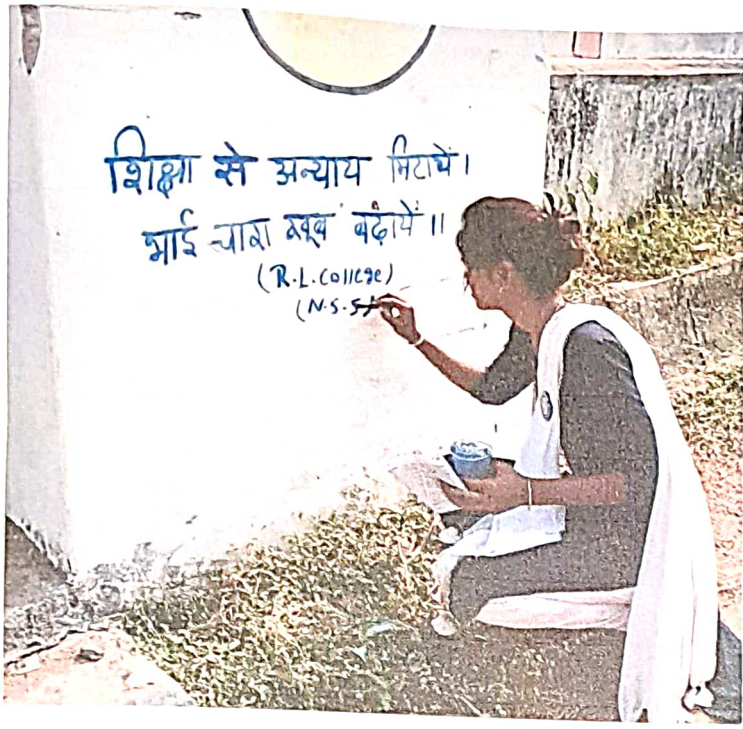 शिक्षा से अन्याय मिटायें।
भाई चारा खूब बढ़ायें।।
(R.L.College)
(N.S.S)